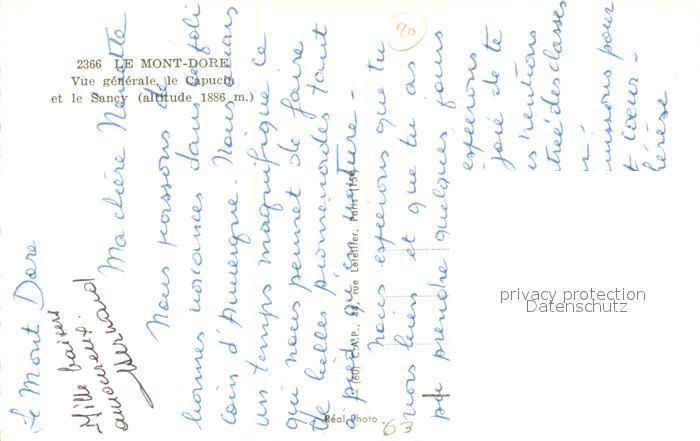 2366 LE MONT-DORE
Vue générale, le Capucin
et le Sancy (altitude 1886 m.)
Le Mont Dore
Ma chère Nanette
Nous passons de
bonnes vacances dans ce joli
coin d'Auvergne. Nous avons
un temps magnifique ce
qui nous permet de faire
de belles promenades tant
à pied qu'en voiture -
Nous espérons que tu
vas bien et que tu as
pu prendre quelques jours
espérons
joie de te
es rentrions
trée des classes
missions pour
t coeur -
hérèse
Mille baisers
amoureux.
Bernard
(60) C.A.P., 44, rue Letellier, Paris (15e)
Réal-Photo
20
63
privacy protection
Datenschutz